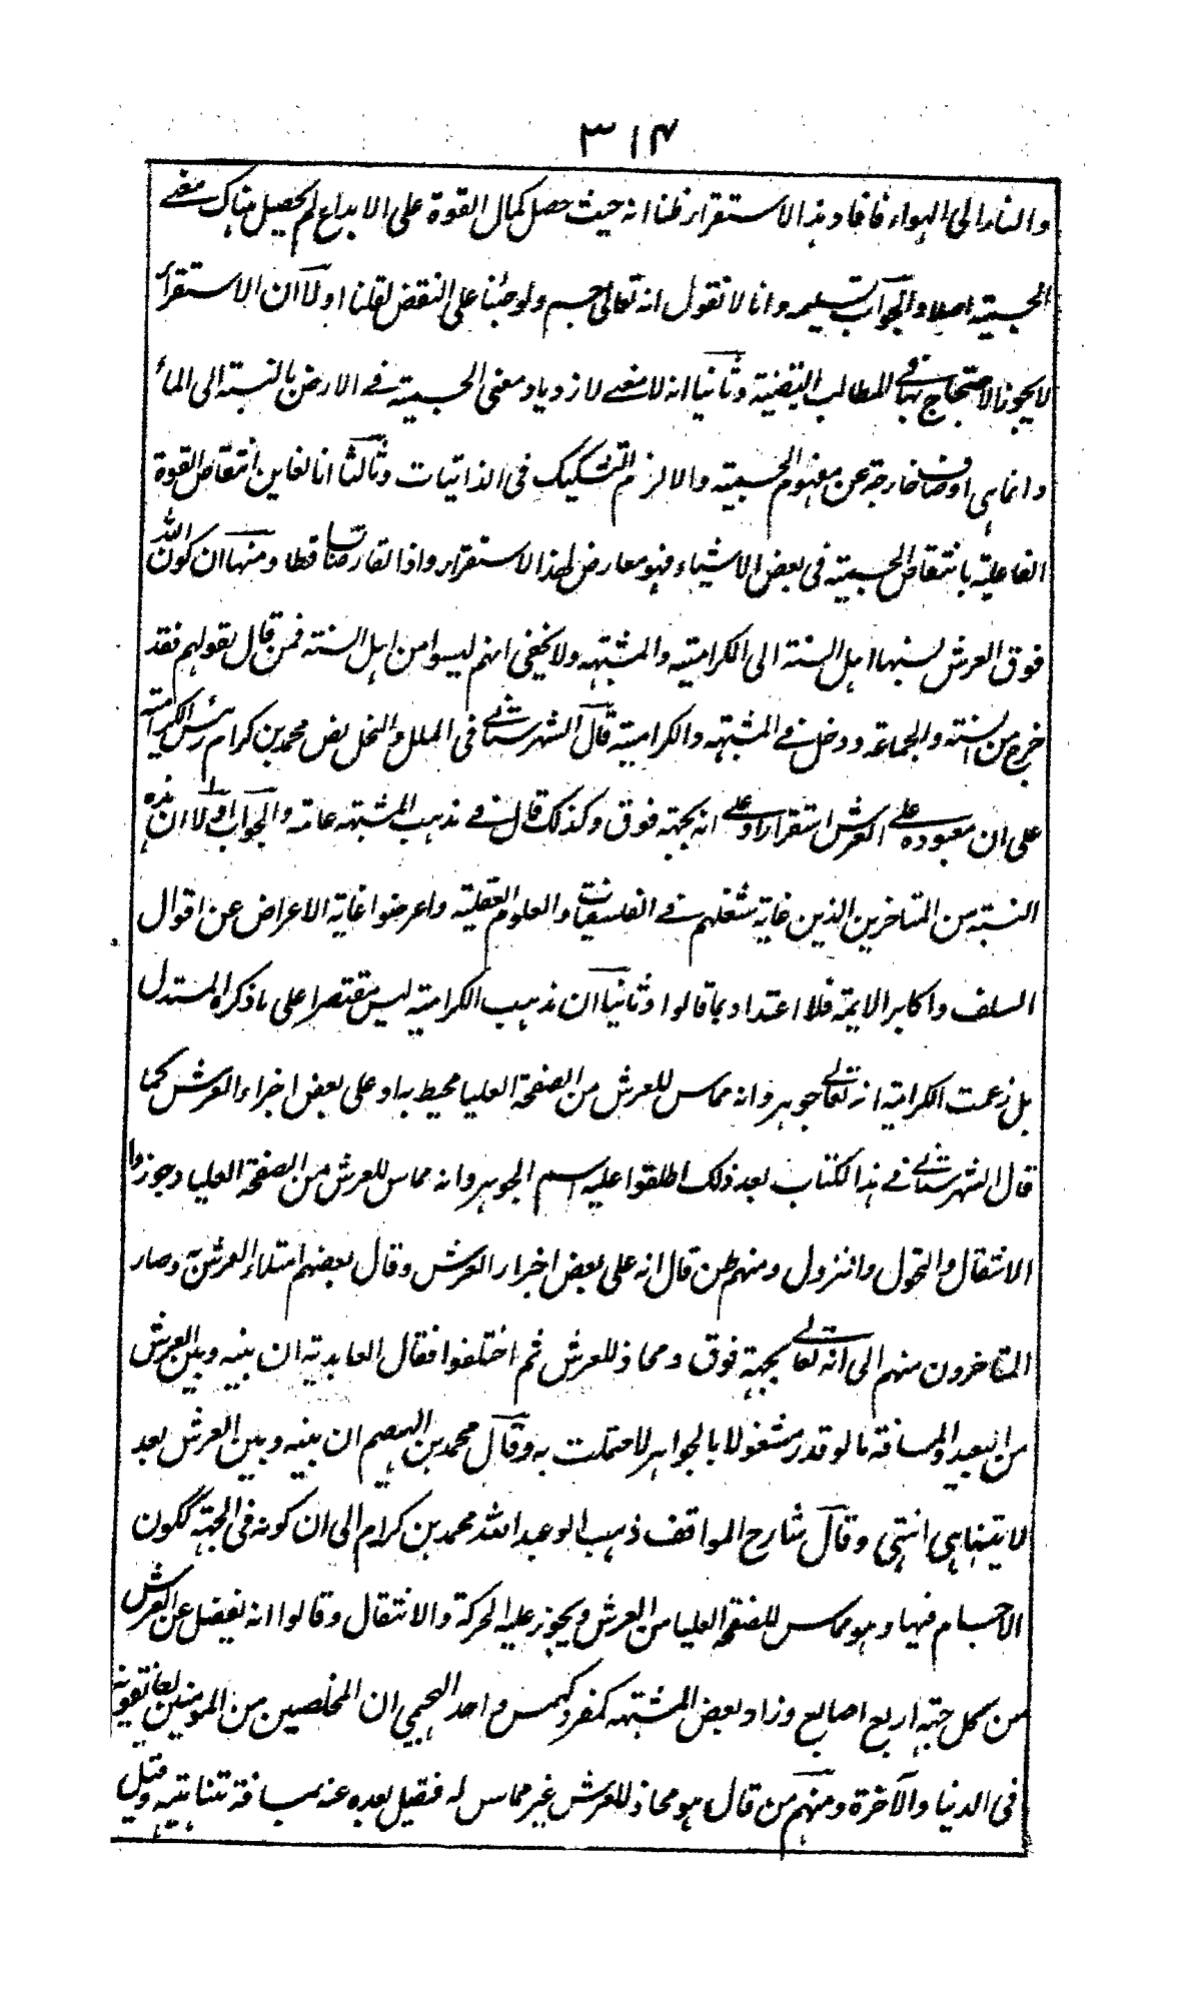 ۳۱۴
والنار الی الہواء فافاد ہذا الاستقراء ظنا انہ حیث حصل کمال القوۃ علی الابداع لم یحصل ہناک معنی
الجسمیۃ اصلا والجواب تسلیمہ وانا لا نقول انہ تعالی جسم ولو جئنا علی النقض لقلنا اولا ان الاستقراء
لا یجوز الاحتجاج بہا فی المطالب الیقینیۃ وثانیا انہ لا معنی لازدیاد معنی الجسمیۃ فی الارض بالنسبۃ الی الماء
وانما ہی اوصاف خارجۃ عن مفہوم الجسمیۃ والا لزم التشکیک فی الذاتیات وثالثا انا نعاین انتقاص القوۃ
الفاعلیۃ بانتقاص الجسمیۃ فی بعض الاشیاء فہو معارض لہذا الاستقراء واذا تعارضتا تساقطا ومنہا ان کون اللہ
فوق العرش نسبہا اہل السنۃ الی الکرامیۃ والمشبہہ ولا یخفی انہم لیسوا من اہل السنۃ فمن قال بقولہم فقد
خرج من السنۃ والجماعۃ ودخل فی المشبہہ والکرامیۃ قال الشہرستانی فی الملل والنحل نص محمد بن کرام رئیس الکرامیۃ
علی ان معبودہ علی العرش استقرارا وعلی انہ بجہۃ فوق وکذلک قال فی مذہب المشبہہ عامۃ والجواب اولا ان ہذہ
النسبۃ من المتاخرین الذین غایۃ شغلہم فی الفلسفیات والعلوم العقلیۃ واعرضوا غایۃ الاعراض عن اقوال
السلف واکابر الایمۃ فلا اعتداد بما قالوا وثانیا ان مذہب الکرامیۃ لیس مقتصرا علی ما ذکرہ المستدل
بل زعمت الکرامیۃ انہ تعالی جوہر وانہ مماس للعرش من الصفحۃ العلیا محیط بہ او علی بعض اجزاء العرش کما
قال الشہرستانی فی ہذا الکتاب بعد ذلک اطلقوا علیہ اسم الجوہر وانہ مماس للعرش من الصفحۃ العلیا وجوزوا
الانتقال والتحول والنزول ومنہم من قال انہ علی بعض اجزاء العرش وقال بعضہم امتلاء العرش بہ وصار
المتاخرون منہم الی انہ تعالی بجہۃ فوق ومحاذ للعرش ثم اختلفوا فقال العابدیۃ ان بینہ وبین العرش
من البعد والمسافۃ ما لو قدر مشغولا بالجواہر لاحتملت بہ وقال محمد بن الہیصم ان بینہ وبین العرش بعد
لا یتناہی انتہی وقال شارح المواقف ذہب ابو عبد اللہ محمد بن کرام الی ان کونہ فی الجہۃ ککون
الاجسام فیہا وہو مماس للصفحۃ العلیا من العرش ویجوز علیہ الحرکۃ والانتقال وقالوا انہ یفضل عن العرش
من کل جہۃ اربع اصابع وزاد بعض المشبہہ کمضر وکہمس واحمد الہجیمی ان المخلصین من المومنین یعانقونہ
فی الدنیا والآخرۃ ومنہم من قال ہو محاذ للعرش غیر مماس لہ فقیل بعدہ عنہ بمسافۃ متناہیۃ وقیل